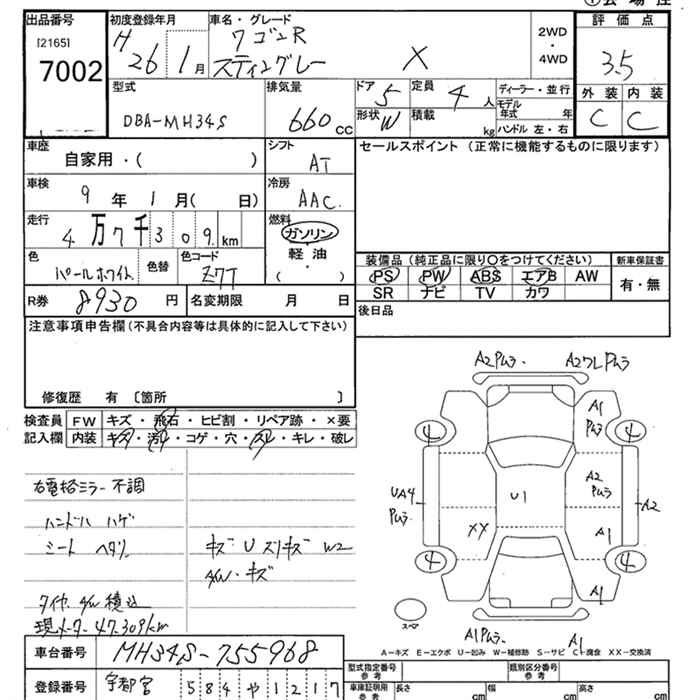 出品番号 初度登録年月 車名・グレード 評価点
[2165] H ワゴンR 2WD
7002 26 1月 スティングレー X ・ 4WD 3.5
型式 排気量 ドア 5 定員 4人 ディーラー・並行 外装 内装
DBA-MH34S 660cc 形状 W 積載 kg モデル年式 年 C C
ハンドル 左・右
車歴 シフト セールスポイント (正常に機能するものに限ります)
自家用・( ) AT
車検 冷房
9年 1月( 日) AAC
走行 燃料
4万7千309km ガソリン
色 色替 色コード 軽油 装備品 (純正品に限り○をつけてください) 新車保証書
パールホワイト Z7T ( ) PS PW ABS エアB AW 有・無
R券 8930円 名変期限 月 日 SR ナビ TV カワ
注意事項申告欄 (不具合内容等は具体的に記入して下さい) 後日品
修復歴 有 〔箇所 〕
検査員 FW キズ・飛石・ヒビ割・リペア跡・×要
記入欄 内装 キズ・汚レ・コゲ・穴・スレ・キレ・破レ
右電格ミラー不調
ハンドル ハゲ
シート ヘタリ キズ U スリキズ W2
A/W・キズ
タイヤ A/W 積込
現メーター 47.309km
A2Pムラ A2ワレPムラ
A1
Pムラ
4 4
UA4 A2
Pムラ U1 Pムラ A2
XX A1
4 4
A1
スペア
A1Pムラ A1
A-キズ E-エクボ U-凹み W-補修跡 S-サビ C-腐食 XX-交換済
車台番号 MH34S-755968
型式指定番号 類別区分番号
登録番号 宇都宮 584 や 1217
車庫証明用 長さ cm 幅 cm 高さ cm